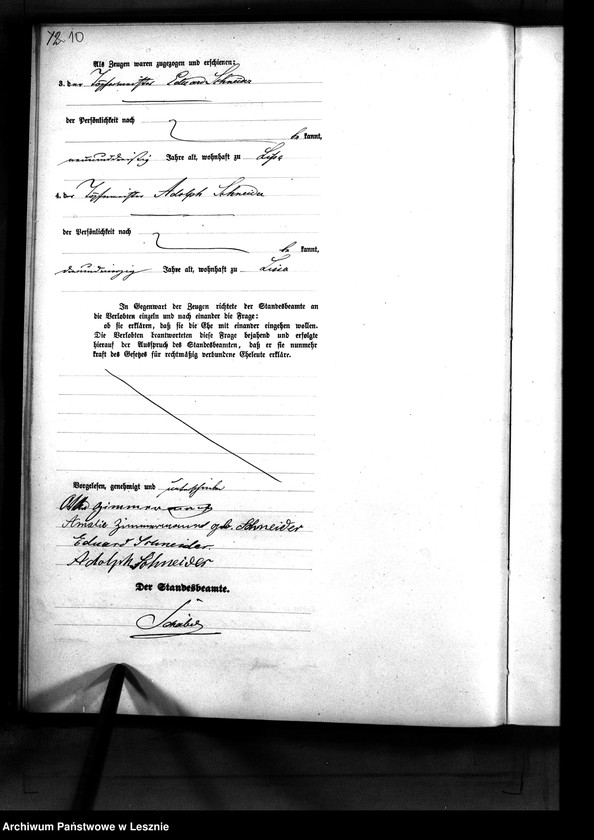 12-10
Als Zeugen waren zugezogen und erschienen:
3. der Töpfermeister Eduard Schneider
der Persönlichkeit nach
be kannt,
neununddreißig Jahre alt, wohnhaft zu Lissa
4. der Töpfermeister Adolph Schneider
der Persönlichkeit nach
be kannt,
Jahre alt, wohnhaft zu Lissa
In Gegenwart der Zeugen richtete der Standesbeamte an
die Verlobten einzeln und nach einander die Frage:
ob sie erklären, daß sie die Ehe mit einander eingehen wollen.
Die Verlobten beantworteten diese Frage bejahend und erfolgte
hierauf der Ausspruch des Standesbeamten, daß er sie nunmehr
kraft des Gesetzes für rechtmäßig verbundene Eheleute erkläre.
Vorgelesen, genehmigt und unterschrieben
Zimmermann
Amalie Zimmermann geb. Schneider
Eduard Schneider.
Adolph Schneider
Der Standesbeamte.
Archiwum Państwowe w Lesznie